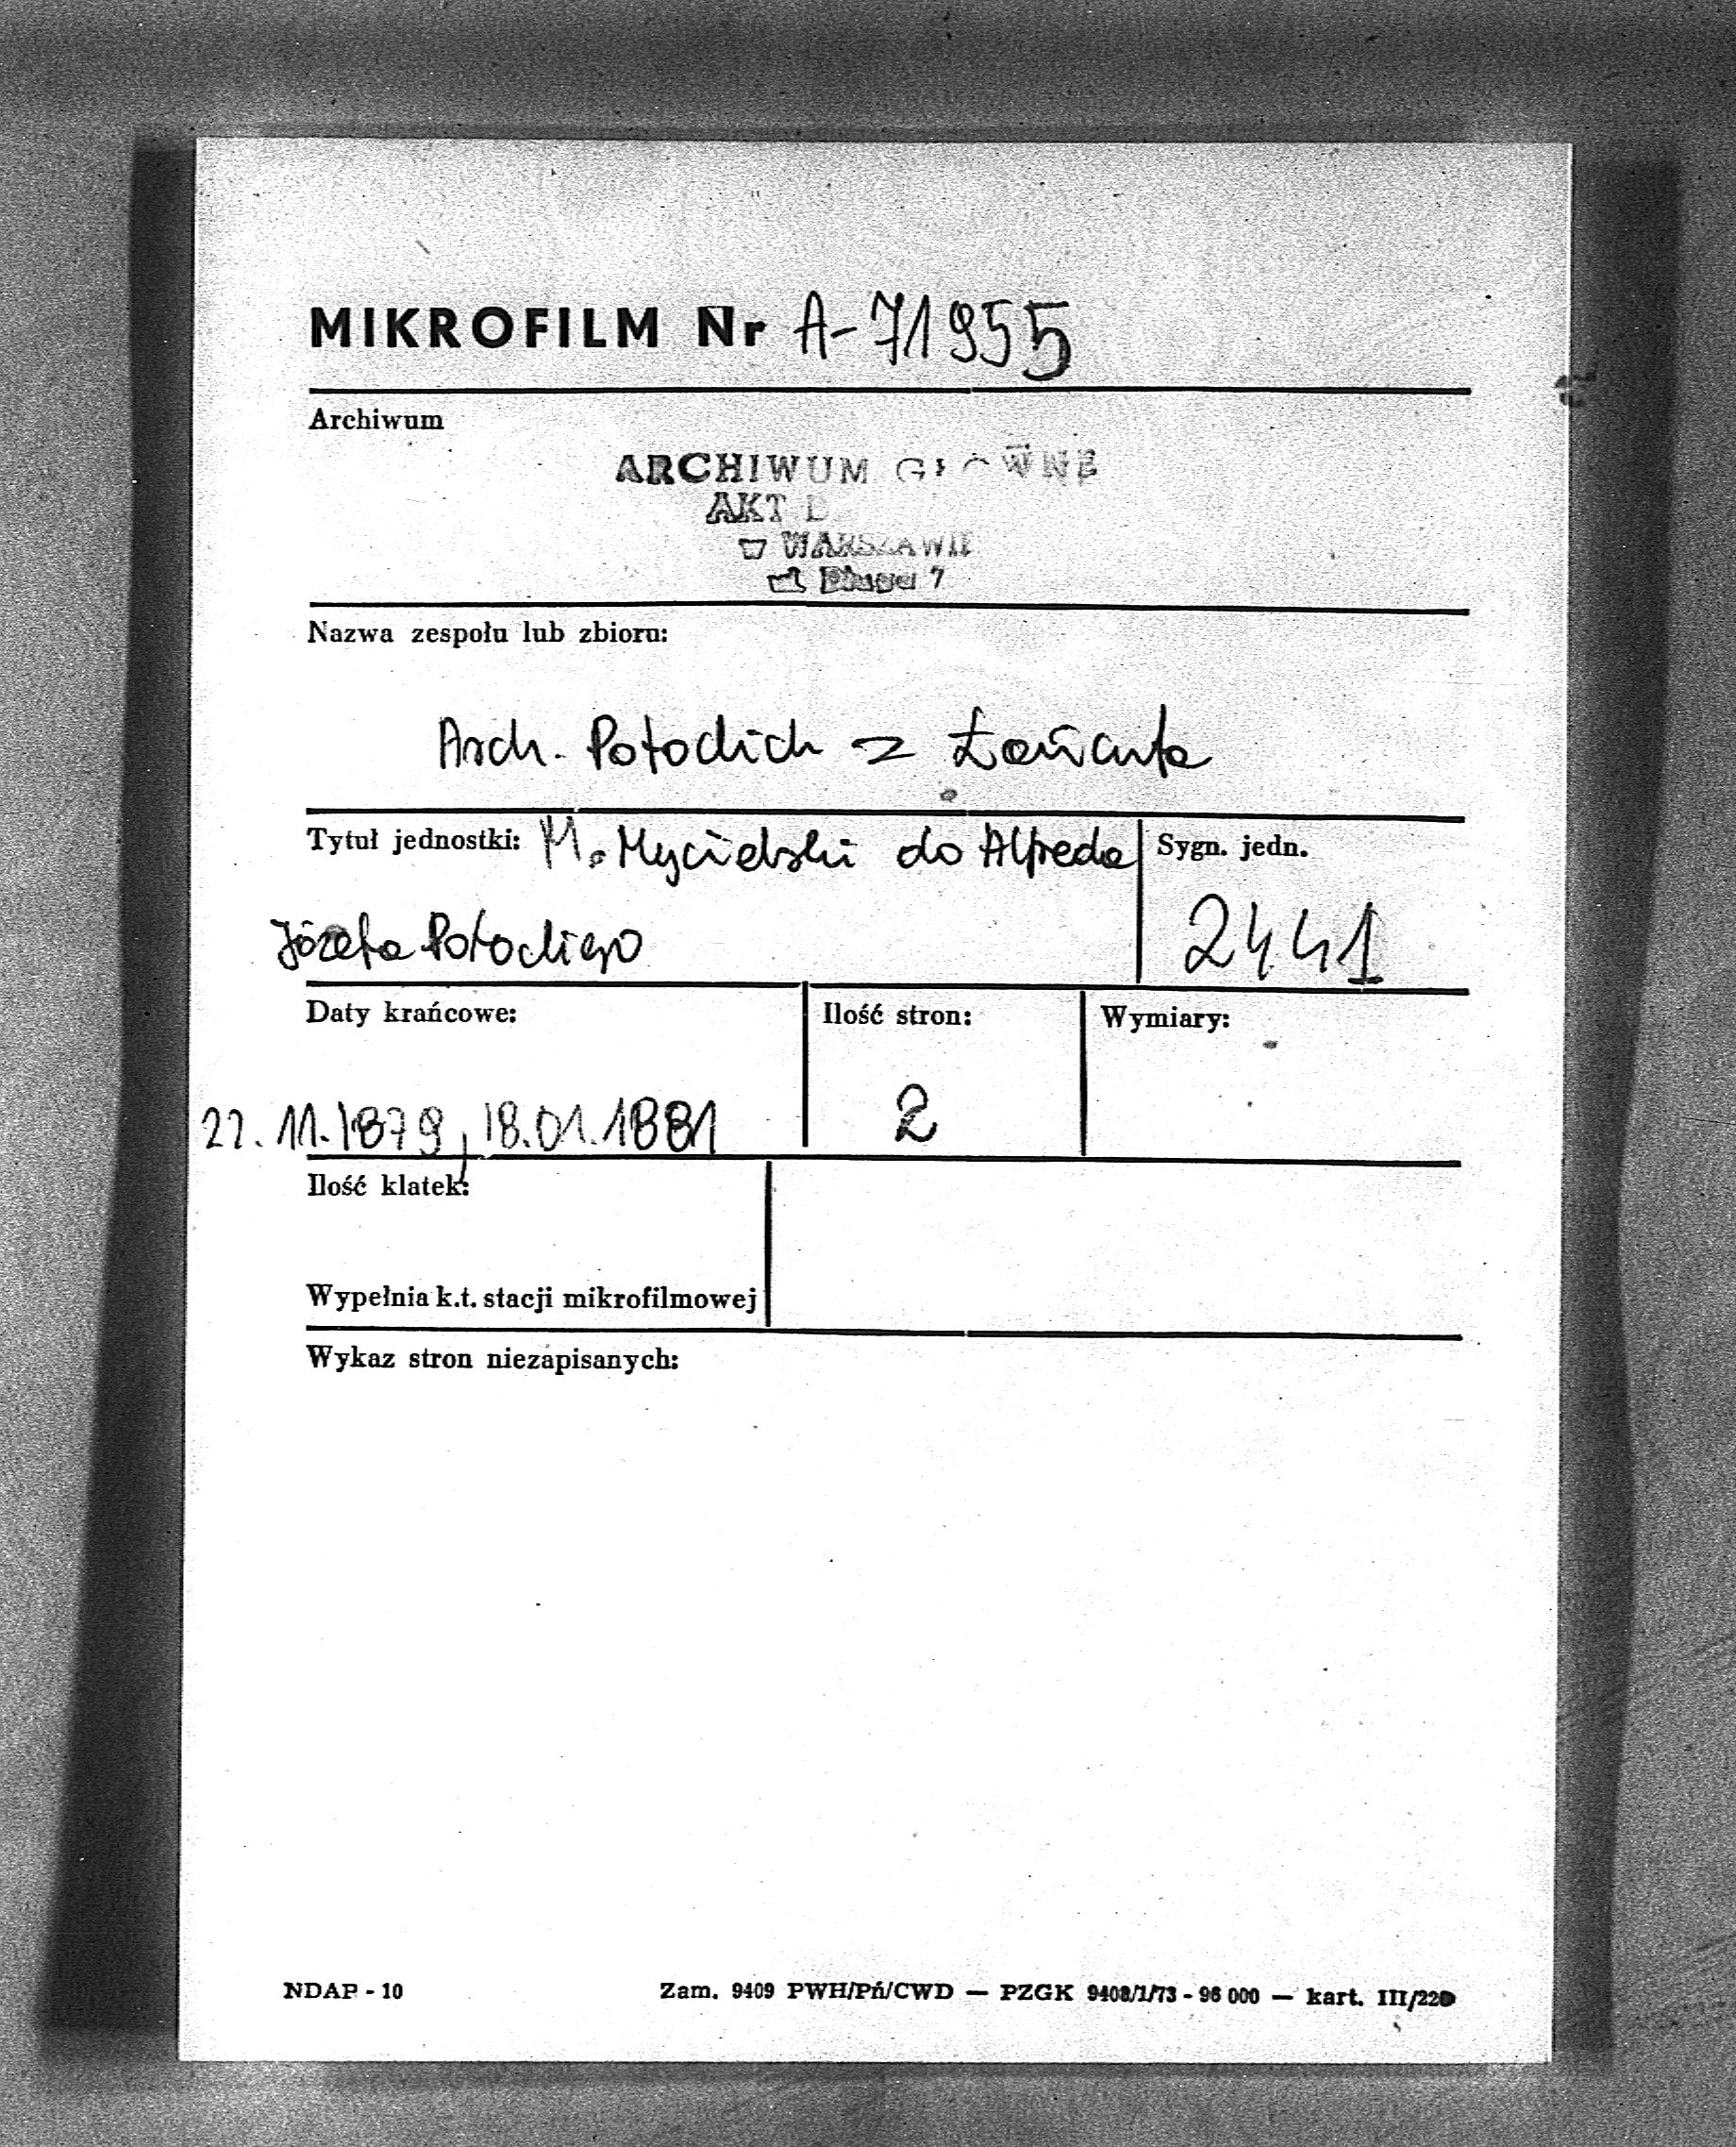 MIKROFILM Nr A-71955
Archiwum
ARCHIWUM GŁÓWNE
AKT D
W WARSZAWIE
ul. Długa 7
Nazwa zespołu lub zbioru:
Arch. Potockich z Łańcuta
Tytuł jednostki: M. Mycielski do Alfreda
Sygn. jedn.
Józefa Potockiego
2441
Daty krańcowe:
Ilość stron:
Wymiary:
22.11.1879, 18.01.1881
2
Ilość klatek:
Wypełnia k.t. stacji mikrofilmowej
Wykaz stron niezapisanych:
NDAP - 10
Zam. 9409 PWH/Pń/CWD — PZGK 9408/1/73 - 96 000 — kart. III/220